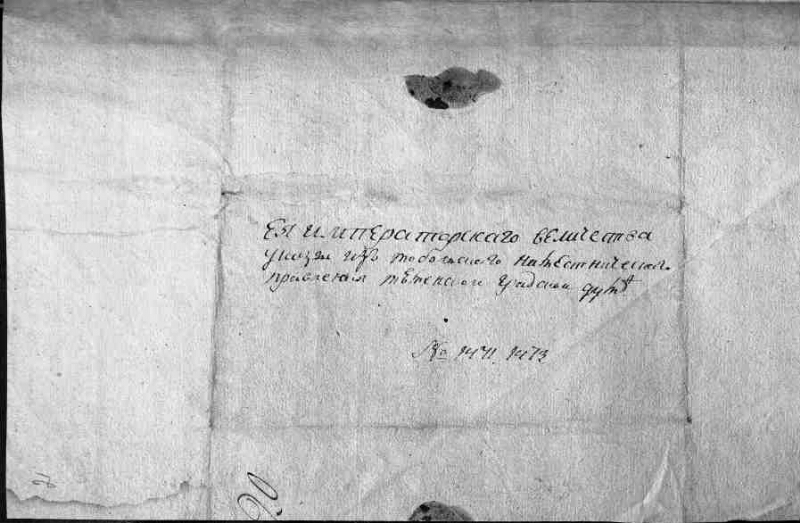 Ея императорскаго величества
указы изъ тобольскаго намѣстническаго
правления тюменской градской думѣ
№ 1471. 1473